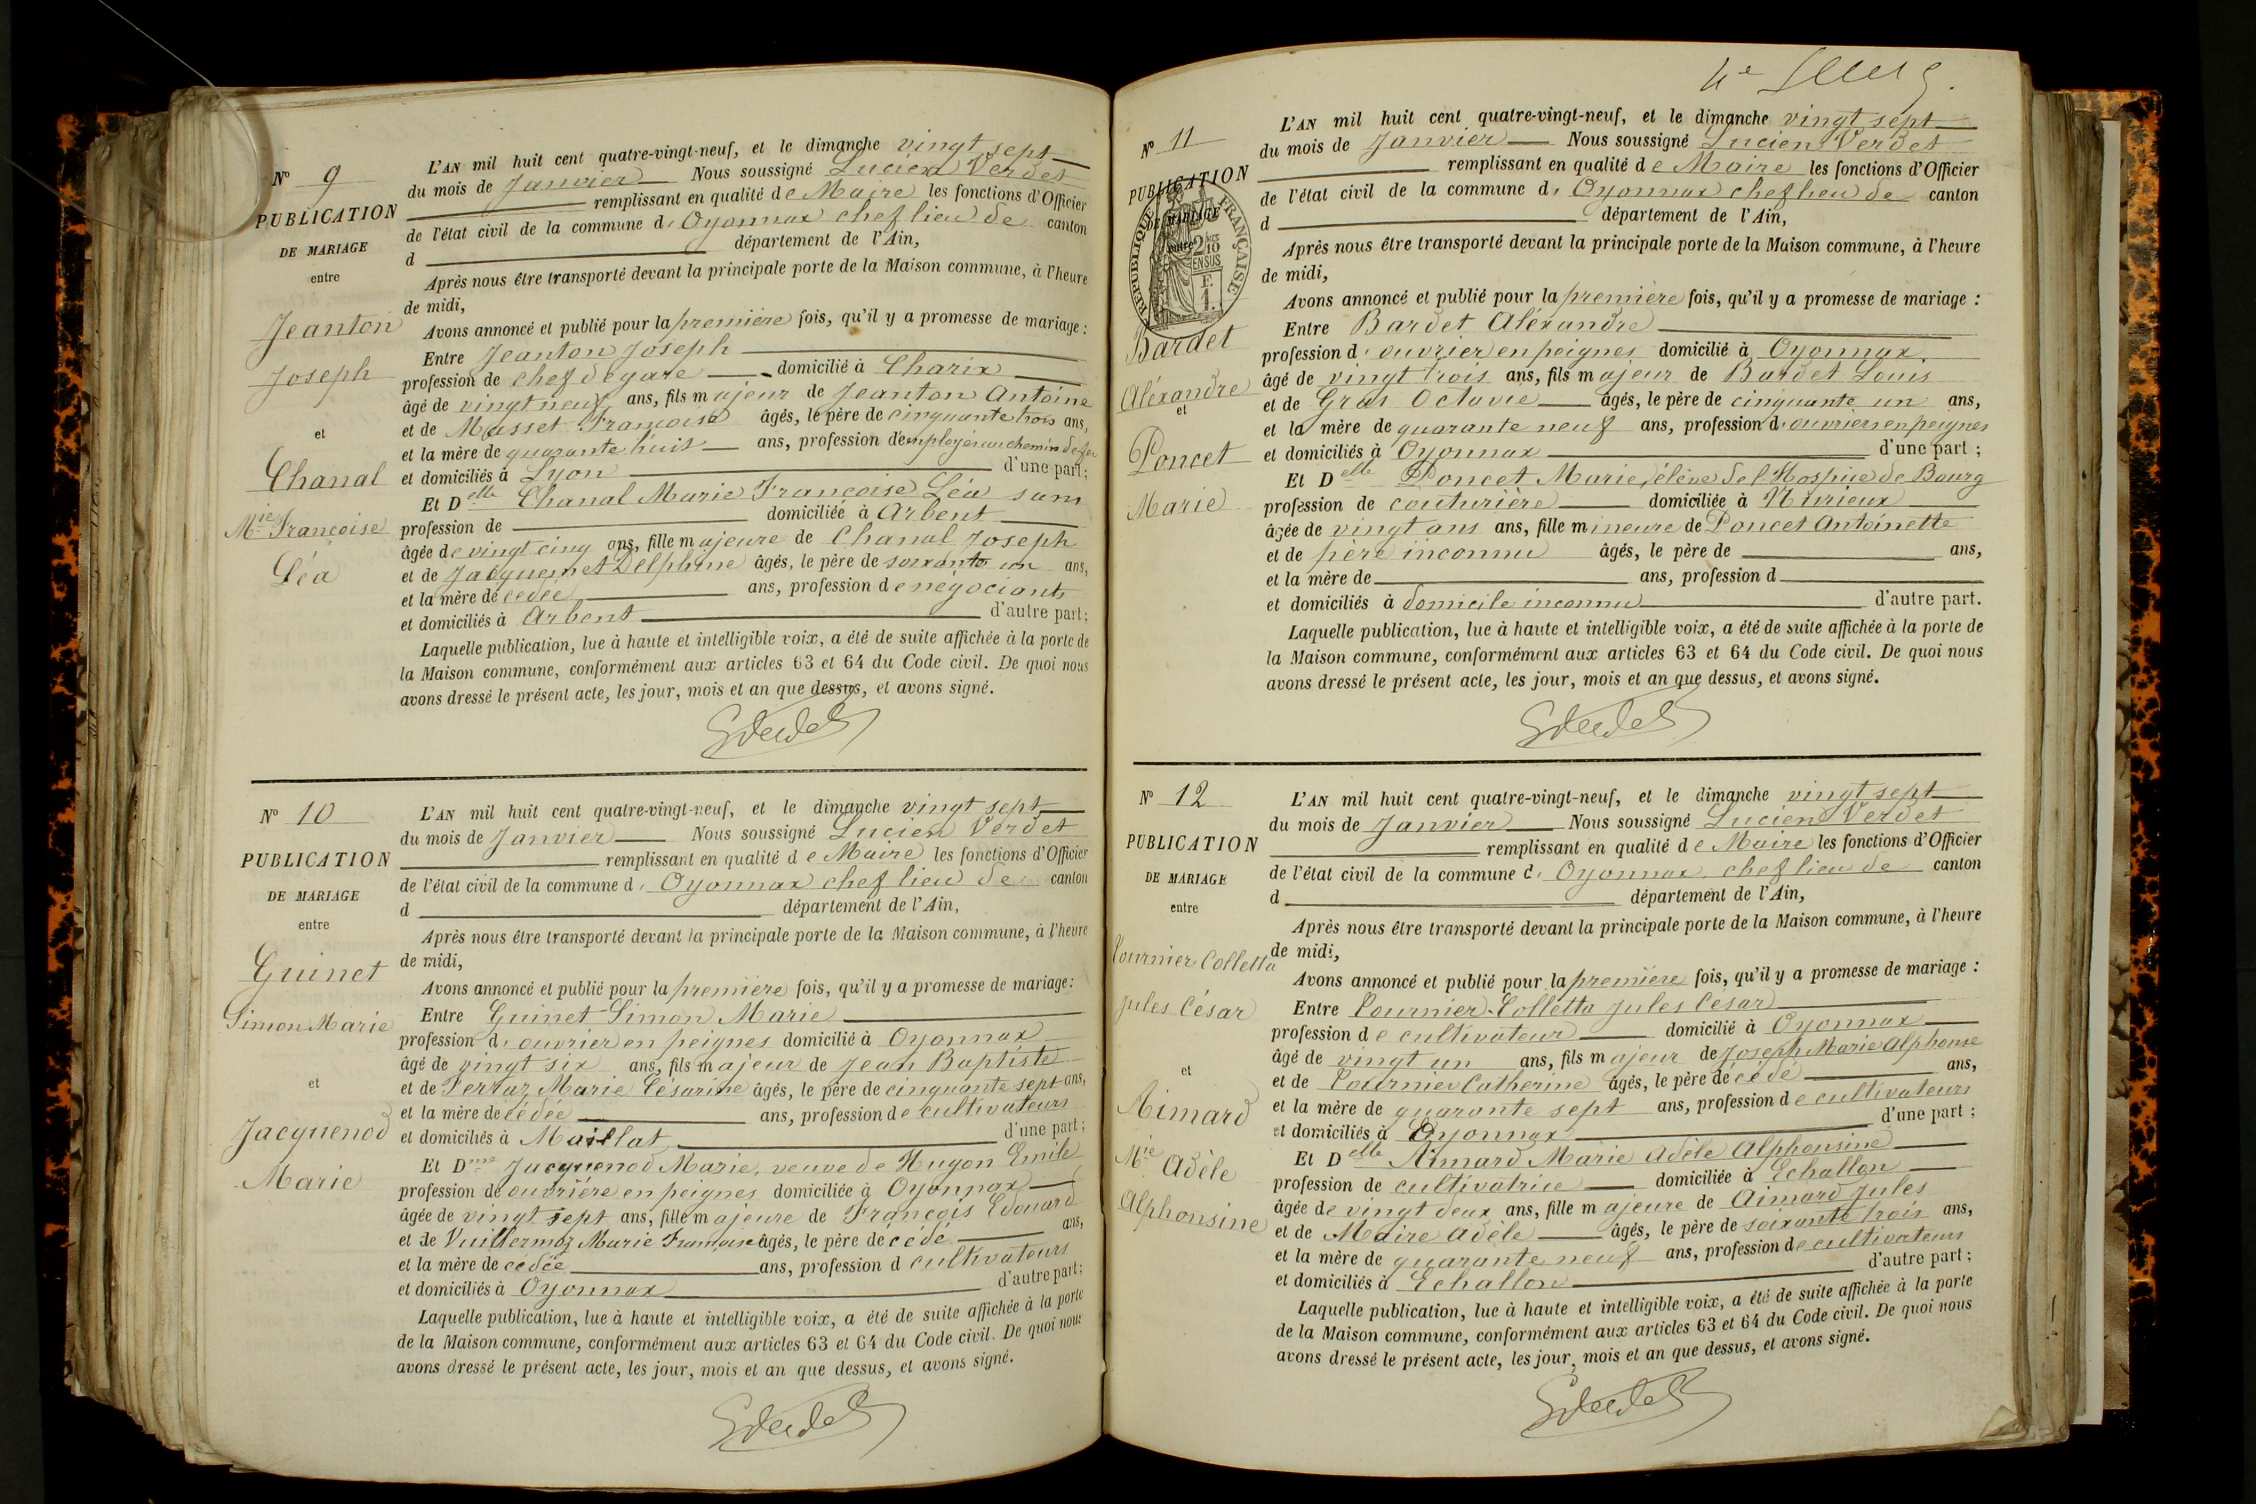 Nº 9
PUBLICATION
DE MARIAGE
entre
Jeanton
Joseph
et
Chanal
Mie Françoise
Léa
L'AN mil huit cent quatre-vingt-neuf, et le dimanche vingt sept
du mois de Janvier Nous soussigné Lucien Verdet
remplissant en qualité de Maire les fonctions d'Officier
de l'état civil de la commune d' Oyonnax chef lieu de canton
d département de l'Ain,
Après nous être transporté devant la principale porte de la Maison commune, à l'heure
de midi,
Avons annoncé et publié pour la première fois, qu'il y a promesse de mariage :
Entre Jeanton Joseph
profession de chef de gare domicilié à Charix
âgé de vingt neuf ans, fils majeur de Jeanton Antoine
et de Musset Françoise âgés, le père de cinquante trois ans,
et la mère de quarante huit ans, profession d'employés au chemin de fer
et domiciliés à Lyon d'une part ;
Et Delle Chanal Marie Françoise Léa sans
profession de domiciliée à Arbent
âgée de vingt cinq ans, fille majeure de Chanal Joseph
et de Jacquemet Delphine âgés, le père de soixante un ans,
et la mère décédée ans, profession de négociants
et domiciliés à Arbent d'autre part ;
Laquelle publication, lue à haute et intelligible voix, a été de suite affichée à la porte de
la Maison commune, conformément aux articles 63 et 64 du Code civil. De quoi nous
avons dressé le présent acte, les jour, mois et an que dessus, et avons signé.
Nº 10
PUBLICATION
DE MARIAGE
entre
Guinet
Simon Marie
et
Jacquenod
Marie
L'AN mil huit cent quatre-vingt-neuf, et le dimanche vingt sept
du mois de Janvier Nous soussigné Lucien Verdet
remplissant en qualité de Maire les fonctions d'Officier
de l'état civil de la commune d' Oyonnax chef lieu de canton
d département de l'Ain,
Après nous être transporté devant la principale porte de la Maison commune, à l'heure
de midi,
Avons annoncé et publié pour la première fois, qu'il y a promesse de mariage :
Entre Guinet Simon Marie
profession d' ouvrier en peignes domicilié à Oyonnax
âgé de vingt six ans, fils majeur de Jean Baptiste
et de Perraz Marie Césarine âgés, le père de cinquante sept ans,
et la mère décédée ans, profession de cultivateurs
et domiciliés à Maillat d'une part ;
Et Dme Jacquenod Marie, veuve de Hugon Emile
profession de ouvrière en peignes domiciliée à Oyonnax
âgée de vingt sept ans, fille majeure de François Edouard
et de Vuillermoz Marie Françoise âgés, le père décédé ans,
et la mère décédée ans, profession d cultivateurs
et domiciliés à Oyonnax d'autre part ;
Laquelle publication, lue à haute et intelligible voix, a été de suite affichée à la porte
de la Maison commune, conformément aux articles 63 et 64 du Code civil. De quoi nous
avons dressé le présent acte, les jour, mois et an que dessus, et avons signé.
4e
Nº 11
PUBLICATION
DE MARIAGE
entre
RÉPUBLIQUE FRANÇAISE
2/10 EN SUS
F. 1.
Bardet
Aléxandre
et
Poncet
Marie
L'AN mil huit cent quatre-vingt-neuf, et le dimanche vingt sept
du mois de Janvier Nous soussigné Lucien Verdet
remplissant en qualité de Maire les fonctions d'Officier
de l'état civil de la commune d' Oyonnax chef lieu de canton
d département de l'Ain,
Après nous être transporté devant la principale porte de la Maison commune, à l'heure
de midi,
Avons annoncé et publié pour la première fois, qu'il y a promesse de mariage :
Entre Bardet Aléxandre
profession d' ouvrier en peignes domicilié à Oyonnax.
âgé de vingt trois ans, fils majeur de Bardet Louis
et de Gras Octavie âgés, le père de cinquante un ans,
et la mère de quarante neuf ans, profession d' ouvriers en peignes
et domiciliés à Oyonnax d'une part ;
Et Delle Poncet Marie, élève de l'Hospice de Bourg
profession de couturière domiciliée à Nurieux
âgée de vingt ans ans, fille mineure de Poncet Antoinette
et de père inconnu âgés, le père de ans,
et la mère de ans, profession d
et domiciliés à domicile inconnu d'autre part.
Laquelle publication, lue à haute et intelligible voix, a été de suite affichée à la porte de
la Maison commune, conformément aux articles 63 et 64 du Code civil. De quoi nous
avons dressé le présent acte, les jour, mois et an que dessus, et avons signé.
Nº 12
PUBLICATION
DE MARIAGE
entre
Tournier Colletta
Jules César
et
Aimard
Mie Adèle
Alphonsine
L'AN mil huit cent quatre-vingt-neuf, et le dimanche vingt sept
du mois de Janvier Nous soussigné Lucien Verdet
remplissant en qualité de Maire les fonctions d'Officier
de l'état civil de la commune d' Oyonnax chef lieu de canton
d département de l'Ain,
Après nous être transporté devant la principale porte de la Maison commune, à l'heure
de midi,
Avons annoncé et publié pour la première fois, qu'il y a promesse de mariage :
Entre Tournier-Colletta Jules César
profession de cultivateur domicilié à Oyonnax
âgé de vingt un ans, fils majeur de Joseph Marie Alphonse
et de Tournier Catherine âgés, le père décédé ans,
et la mère de quarante sept ans, profession de cultivateurs
et domiciliés à Oyonnax d'une part ;
Et Delle Aimard Marie Adèle Alphonsine
profession de cultivatrice domiciliée à Echallon
âgée de vingt deux ans, fille majeure de Aimard Jules
et de Maire Adèle âgés, le père de soixante trois ans,
et la mère de quarante neuf ans, profession de cultivateurs
et domiciliés à Echallon d'autre part ;
Laquelle publication, lue à haute et intelligible voix, a été de suite affichée à la porte
de la Maison commune, conformément aux articles 63 et 64 du Code civil. De quoi nous
avons dressé le présent acte, les jour, mois et an que dessus, et avons signé.